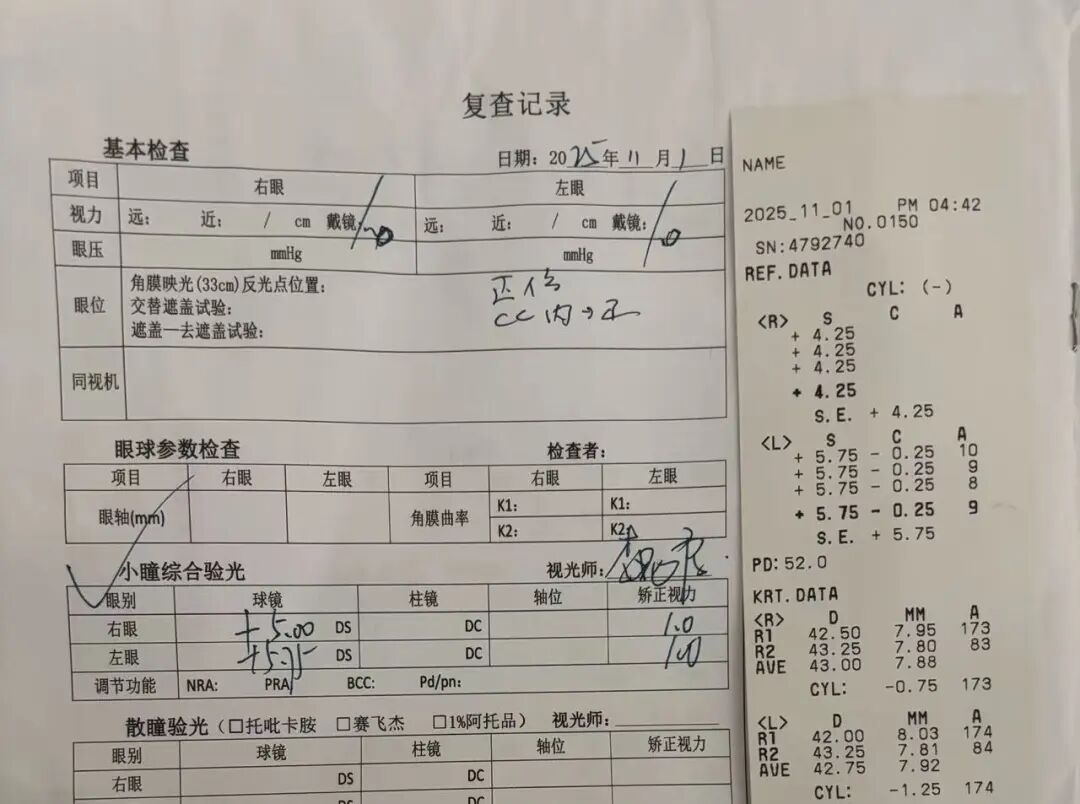 复查记录
基本检查 日期: 2025年11月1日
项目 右眼 左眼
视力 远: 近: / cm 戴镜: 1.0 远: 近: / cm 戴镜: 1.0
眼压 mmHg mmHg
眼位 角膜映光(33cm)反光点位置: 正位
交替遮盖试验: CC 内→正
遮盖一去遮盖试验:
同视机
眼球参数检查 检查者:
项目 右眼 左眼 项目 右眼 左眼
眼轴(mm) 角膜曲率 K1: K1:
K2: K2:
小瞳综合验光 视光师:
眼别 球镜 柱镜 轴位 矫正视力
右眼 +5.00 DS DC 1.0
左眼 +5.75 DS DC 1.0
调节功能 NRA: PRA BCC: Pd/pn:
散瞳验光(□托吡卡胺 □赛飞杰 □1%阿托品) 视光师:
眼别 球镜 柱镜 轴位 矫正视力
右眼 DS DC
DS DC
NAME
2025_11_01 PM 04:42
NO.0150
SN:4792740
REF.DATA
CYL: (-)
<R> S C A
+ 4.25
+ 4.25
+ 4.25
+ 4.25
S.E. + 4.25
<L> S C A
+ 5.75 - 0.25 10
+ 5.75 - 0.25 9
+ 5.75 - 0.25 8
+ 5.75 - 0.25 9
S.E. + 5.75
PD:52.0
KRT.DATA
<R> D MM A
R1 42.50 7.95 173
R2 43.25 7.80 83
AVE 43.00 7.88
CYL: -0.75 173
<L> D MM A
R1 42.00 8.03 174
R2 43.25 7.81 84
AVE 42.75 7.92
CYL: -1.25 174